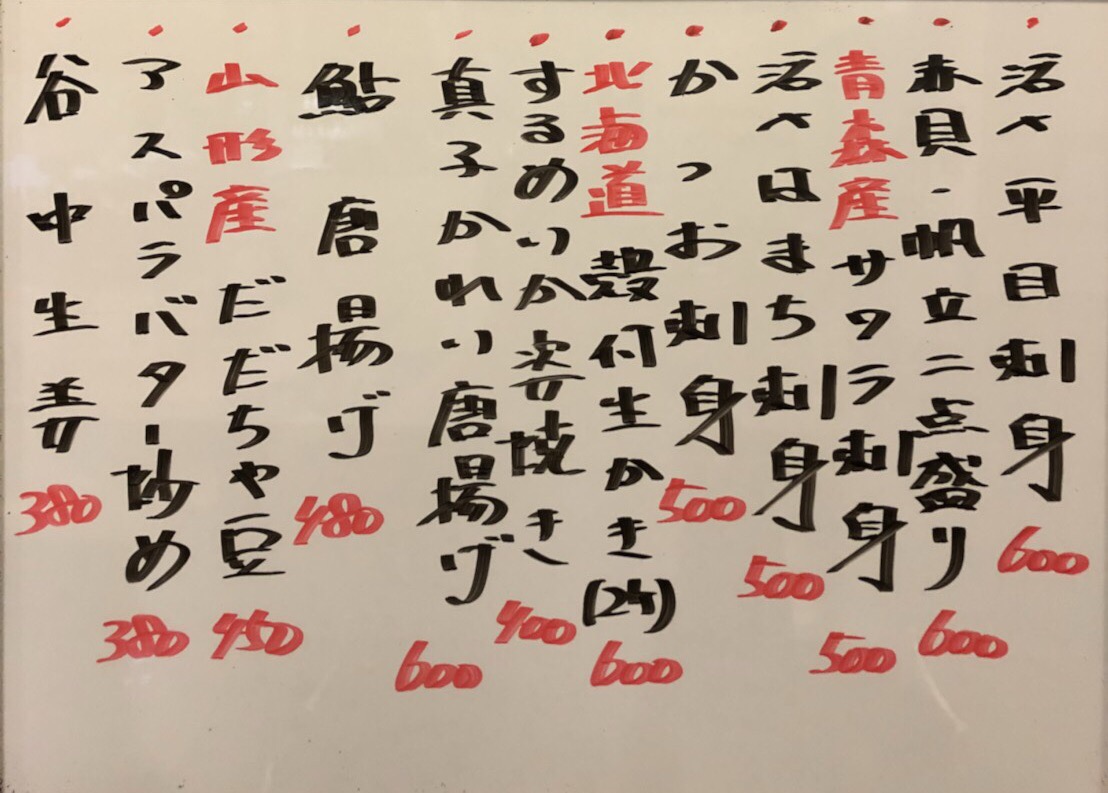 活〆平目刺身 600
赤貝・帆立二点盛り 600
青森産サワラ刺身 500
活〆はまち刺身 500
かつお刺身 500
北海道殻付生かき(2ケ) 600
するめいか姿焼き 400
真子かれい唐揚げ 600
鮎唐揚げ 480
山形産だだちゃ豆 450
アスパラバター炒め 380
谷中生姜 380